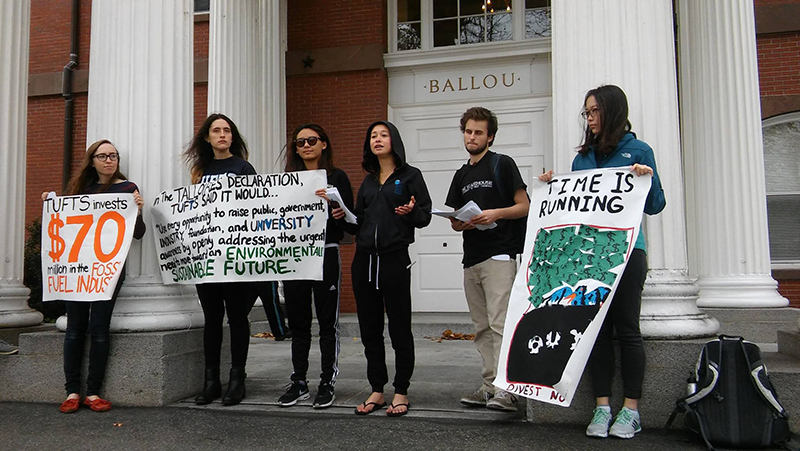 ·BALLOU·
TUFTS invests
$70
million in the FOSS
FUEL INDUS
n the TALLOIRES DECLARATION,
TUFTS SAID IT WOULD...
every opportunity to raise public, government,
INDUSTRY, foundation, and UNIVERSITY
awareness by openly addressing the urgent
need to move toward an ENVIRONMENTALL
SUSTAINABLE FUTURE."
TIME IS
RUNNING
OUT
DIVEST NO